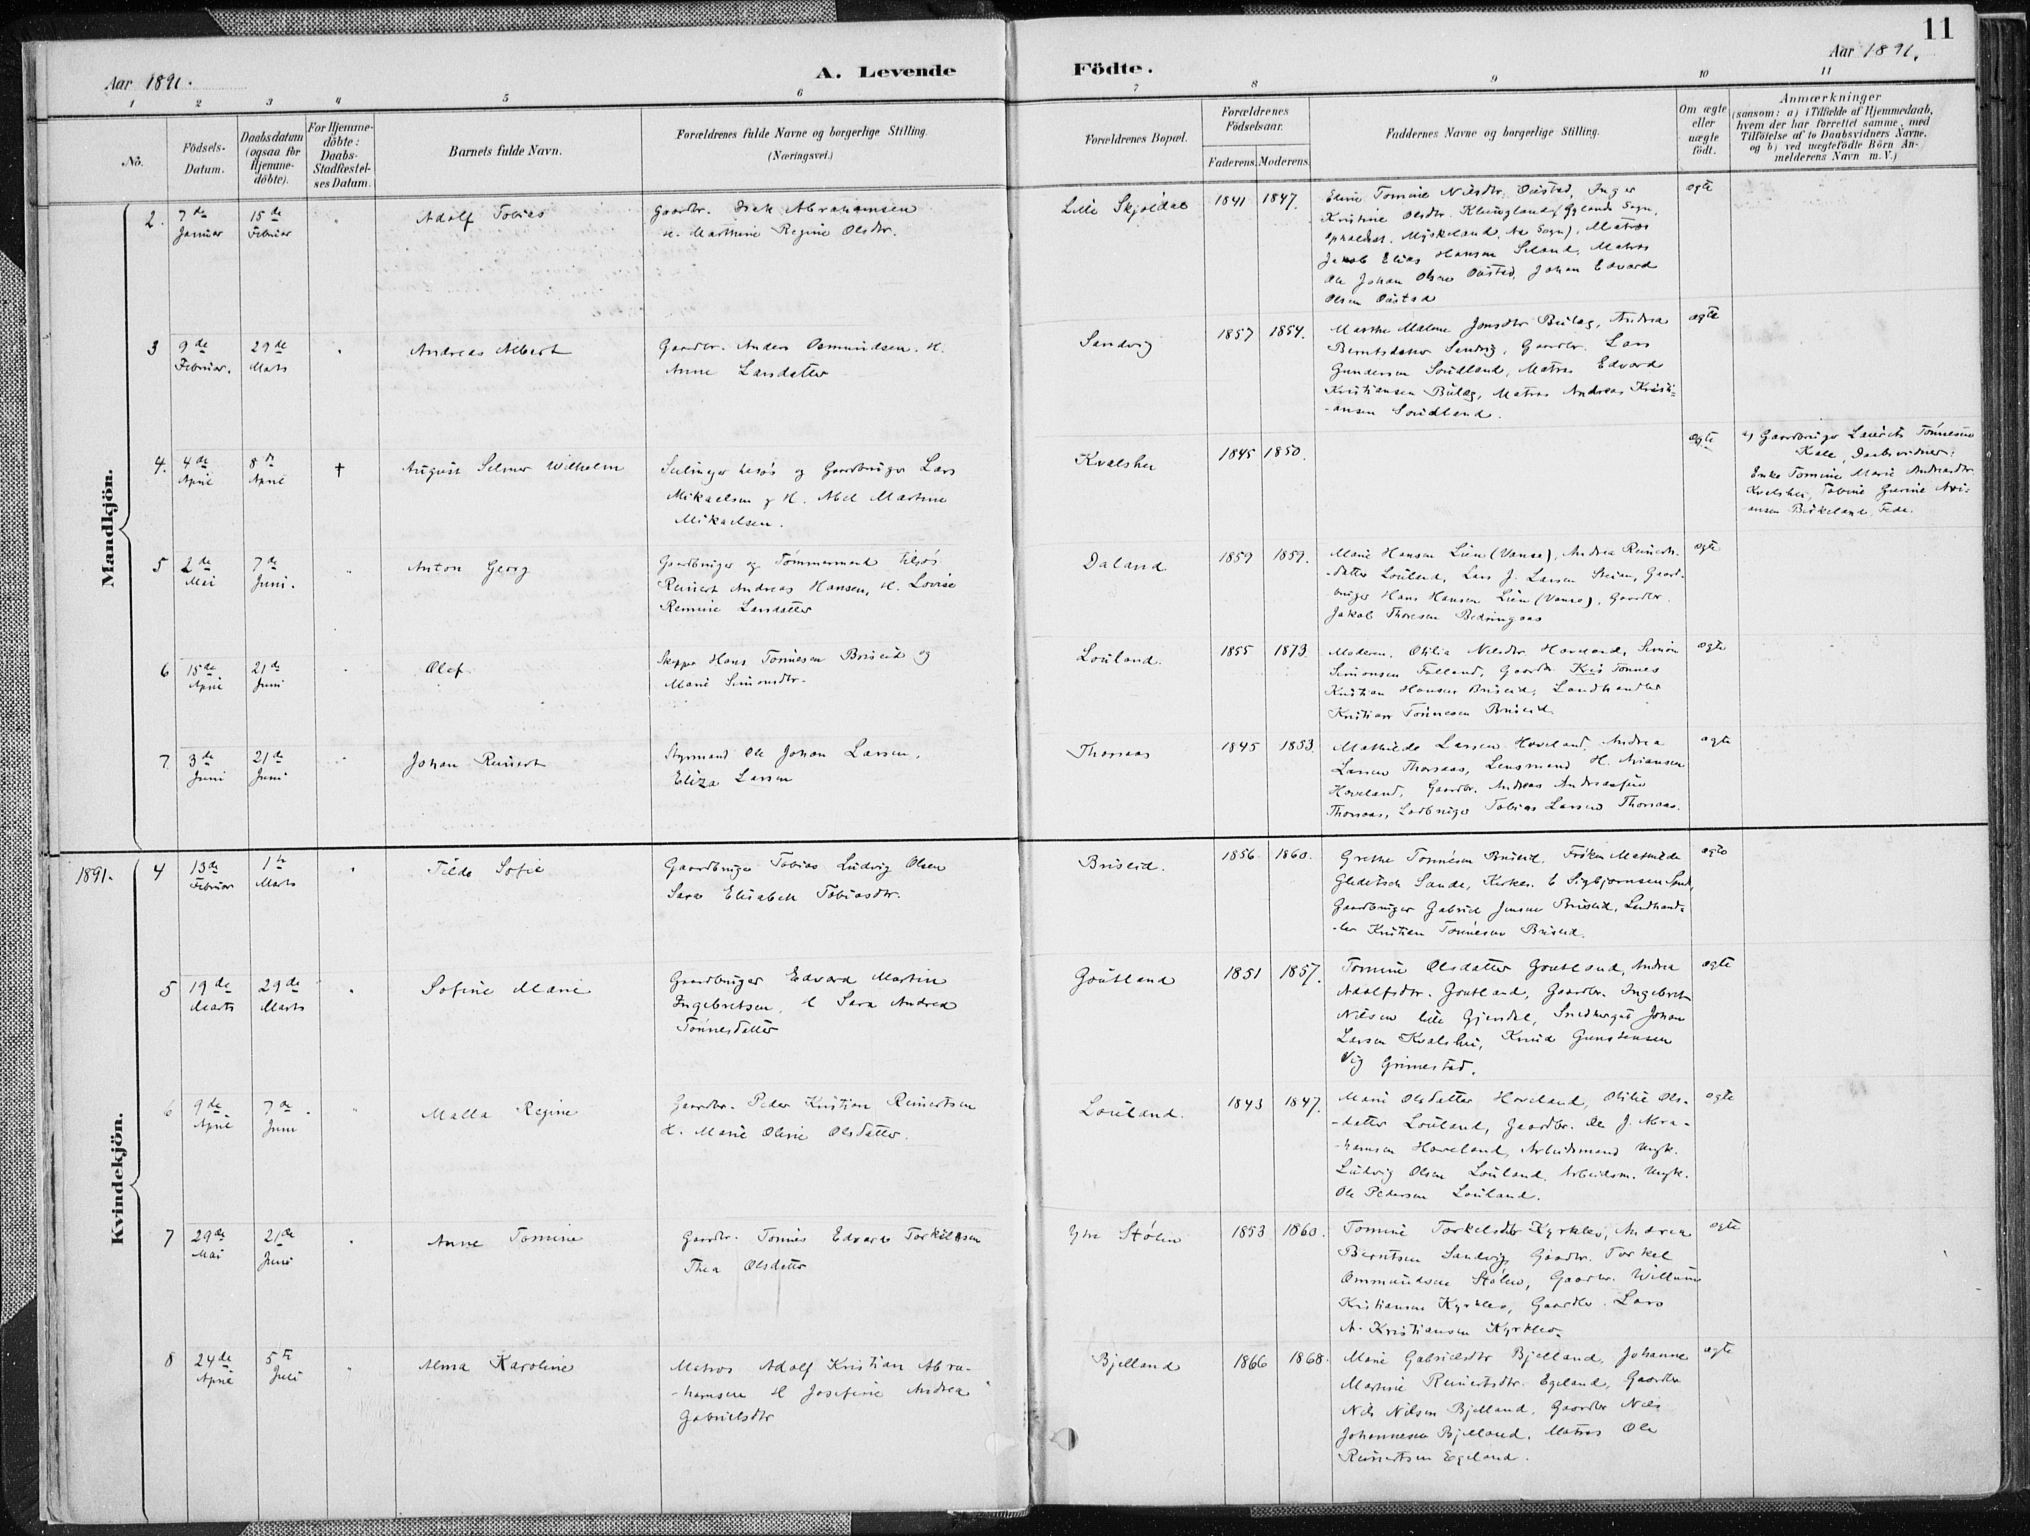 11
Aar 1891.
A. Levende
Födte.
Aar 1891.
1 2 3 4 5 6 7 8 9 10 11
No.
Födsels-
Datum.
Daabsdatum
(ogsaa for
Hjemme-
döbte).
For Hjemme-
döbte:
Daabs-
Stadfæstel-
ses Datum.
Barnets fulde Navn.
Forældrenes fulde Navne og borgerlige Stilling.
(Næringsvei.)
Forældrenes Bopæl.
Forældrenes
Födselsaar.
Faderens. Moderens.
Faddernes Navne og borgerlige Stilling.
Om ægte
eller
uægte
födt.
Anmærkninger
(saasom: a) i Tilfælde af Hjemmedaab,
hvem der har forrettet samme, med
Tilföielse af to Daabsvidners Navne,
og b) ved uægtefödte Börn An-
melderens Navn m. V.)
Mandkjön.
2. 7de
Januar
15de
Februar
Adolf Tobias
Gaardbr. Isak Abrahamsen
H. Marthine Regine Olsdtr.
Lille Skjoldal
1841 1847.
Kristine Olsdtr. Klungland, Gylands Sogn,
Jakob Elias Hansen Seland, Matros
Ole Johan Olsen Oustad, Johan Edvard
Olsen Oustad
ægte
3 9de
Februar.
29de
Marts
Andreas Albert
Gaardbr. Anders Osmundsen. H.
Anne Larsdatter
Sandvig
1857 1854.
Marthe Malene Jonsdtr Bulæg, Andrea
Berntsdatter Sandvig, Gaardbr. Lars
Gundersen Soudland, Matros Edvard
Kristiansen Bulæg, Matros Andreas Kristi-
-ansen Soudland.
ægte
4. 4de
April
8de
April
†
August Selmer Wilhelm
og Gaardbruger Lars
Mikaelsen og H. Abel Martine
Mikaelsen.
Kvalshei
1845 1850.
ægte
a) Gaardbruger Laurits Tönnesen
Kale, Daabsvidner:
Enke Tomine Marie Andreasdtr
Kvalshei, Tobine Gurine Ari-
ansen Birkeland, Fede.
5 2de
Mai
7de
Juni.
Anton Georg
Gaardbruger og Tömmermand tilsjös
Reinert Andreas Hansen, H. Lovise
Remine Larsdatter
Daland
1859 1859.
Marie Hansen Lien (Vanse), Andrea Reinerts-
datter Louland, Lars J. Larsen Steian, Gaard-
bruger Hans Hansen Lien (Vanse), Gaardbr.
Jakob Thoresen Bedringaas
ægte
6 15de
April
21de
Juni
Olaf
Skipper Hans Tönnesen Briseid og
Marie Simonsdtr.
Louland.
1855 1873.
Moderen, Otilia Nilsdtr Hoveland, Simon
Simonsen Falland, Gaardbr. Kris Tönnes
Kristian Hansen Briseid, Landhandler
Kristian Tönnesen Briseid.
ægte
7. 3de
Juni
21de
Juni
Johan Reinert
Styrmand Ole Johan Larsen,
Eliza Larsen
Thorsaas
1845 1853.
Mathilde Larsen Hoveland, Andrea
Larsen Thorsaas, Lensmand H. Ariansen
Hoveland, Gaardbr. Andreas Andreassen
Thorsaas, Ladbruger Tobias Larsen Thorsaas.
ægte
Kvindekjön.
1891. 4 13de
Februar
1ste
Marts
Tilda Sofie
Gaardbruger Tobias Ludvig Olsen
Sara Elisabeth Tobiasdtr.
Briseid.
1856. 1860.
Grethe Tönnesen Briseid, Fröken Mathilde
Gleditsch Sande, Kirkes. C Sigbjörnsen Sande,
Gaardbruger Gabriel Jensen Briseid, Landhand-
-ler Kristian Tönnesen Briseid.
ægte
5 19de
Marts
29de
Marts
Sofine Marie
Gaardbruger Edvard Martin
Ingebretsen, H Sara Andrea
Tönnesdatter
Goutland
1851 1857.
Tomine Olsdatter Goutland, Andrea
Adolfsdtr. Goutland, Gaardbr. Ingebret
Nilsen lille Gjersdal, Snedkergut Johan
Larsen Kvalshei, Knud Gunstensen
Vig Grimestad.
ægte
6 9de
April
7de
Juni
Malla Regine
Gaardbr. Peder Kristian Reinertsen
H. Marie Oline Olsdatter.
Louland.
1843 1847.
Marie Olsdatter Hoveland, Otilie Ols-
-datter Louland, Gaardbr. Ole J. Abra-
-hamsen Hoveland, Arbeidsmand Ungk.
Ludvig Olsen Louland, Arbeidsm. Ungk.
Ole Pedersen Louland.
ægte
7 29de
Mai
21de
Juni
Anne Tomine
Gaardbr. Tönnes Edvard Torkildsen
Thea Olsdatter
Ytre Stölen
1853 1860.
Tomine Torkelsdtr Kyrklev, Andrea
Berntsen Sandvig, Gaardbr. Torkel
Ommundsen Stölen, Gaardbr. Willum
Kristiansen Kyrklev, Gaardbr. Lars
A. Kristiansen Kyrklev.
ægte
8 24de
April
5te
Juli
Alma Karoline
Matros Adolf Kristian Abra-
-hamsen H Josefine Andrea
Gabrielsdtr
Bjelland
1866 1868.
Marie Gabrielsdtr Bjelland, Johanne
Martine Reinertsdtr. Egeland, Gaardbr
Nils Nilsen Bjelland, Gaardbr Nils
Johannesen Bjelland, Matros Ole
Reinertsen Egeland.
ægte